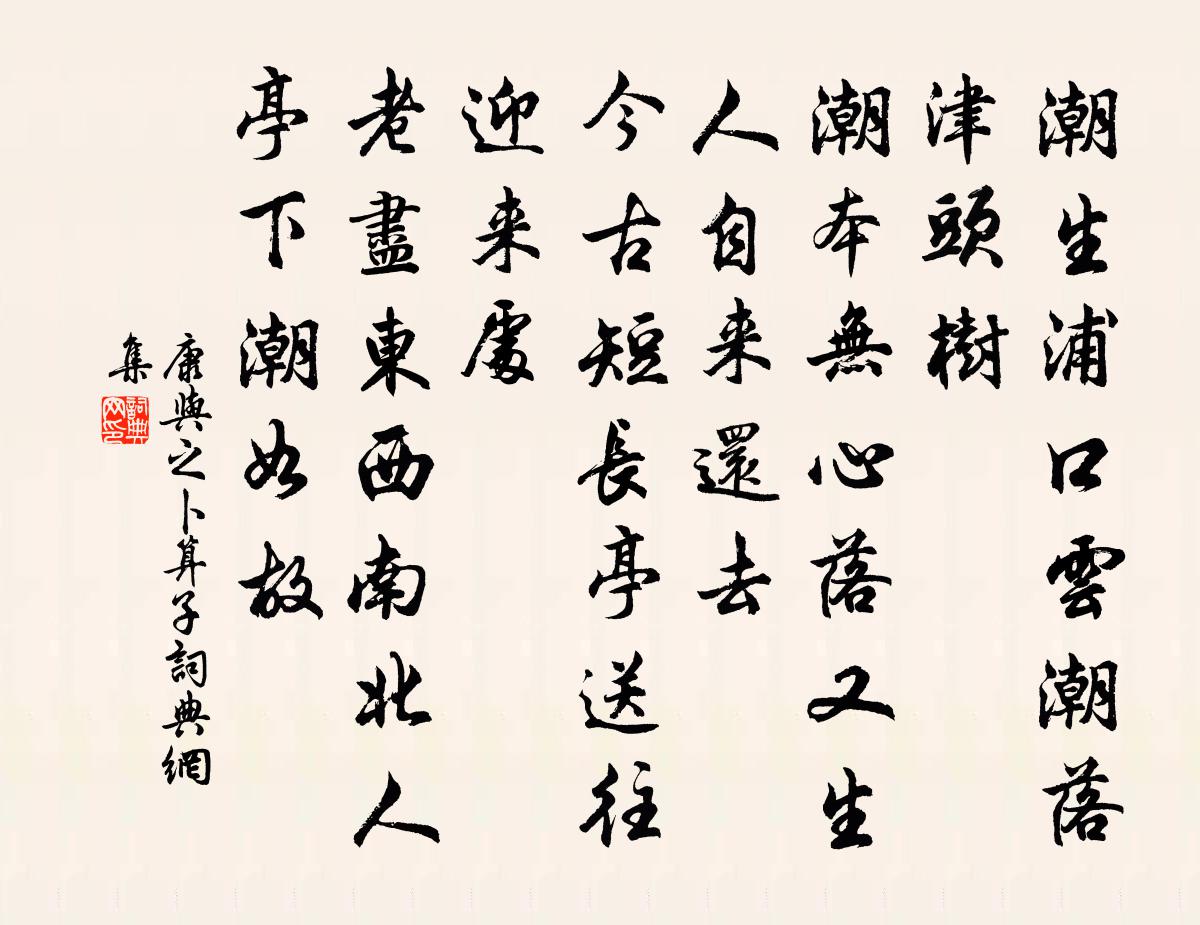 潮生浦口雲潮落
津頭樹
潮本無心落又生
人自来還去
今古短長亭送往
迎来處
老盡東西南北人
亭下潮如故
康與之卜算子詞典網
集
詞典网印